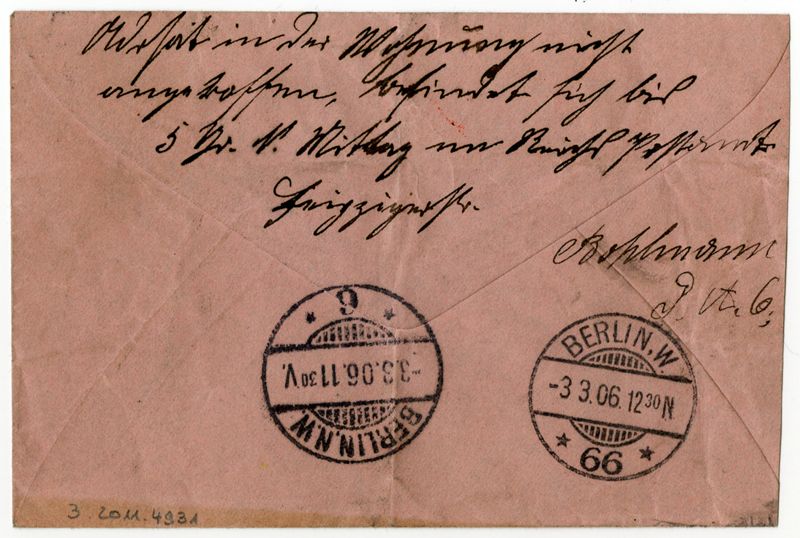 Adrsat in der Wohnung nicht
angetroffen, befindet sich bis
5 Uhr N. Mittag im Reichs Postamt
Leipzigerstr.
Bohlmann
P. A. 6.
6
-3.3.06.11 30 V.
BERLIN.N.W.
BERLIN.W.
-3 3.06.12 30 N
66
3.2011.4931